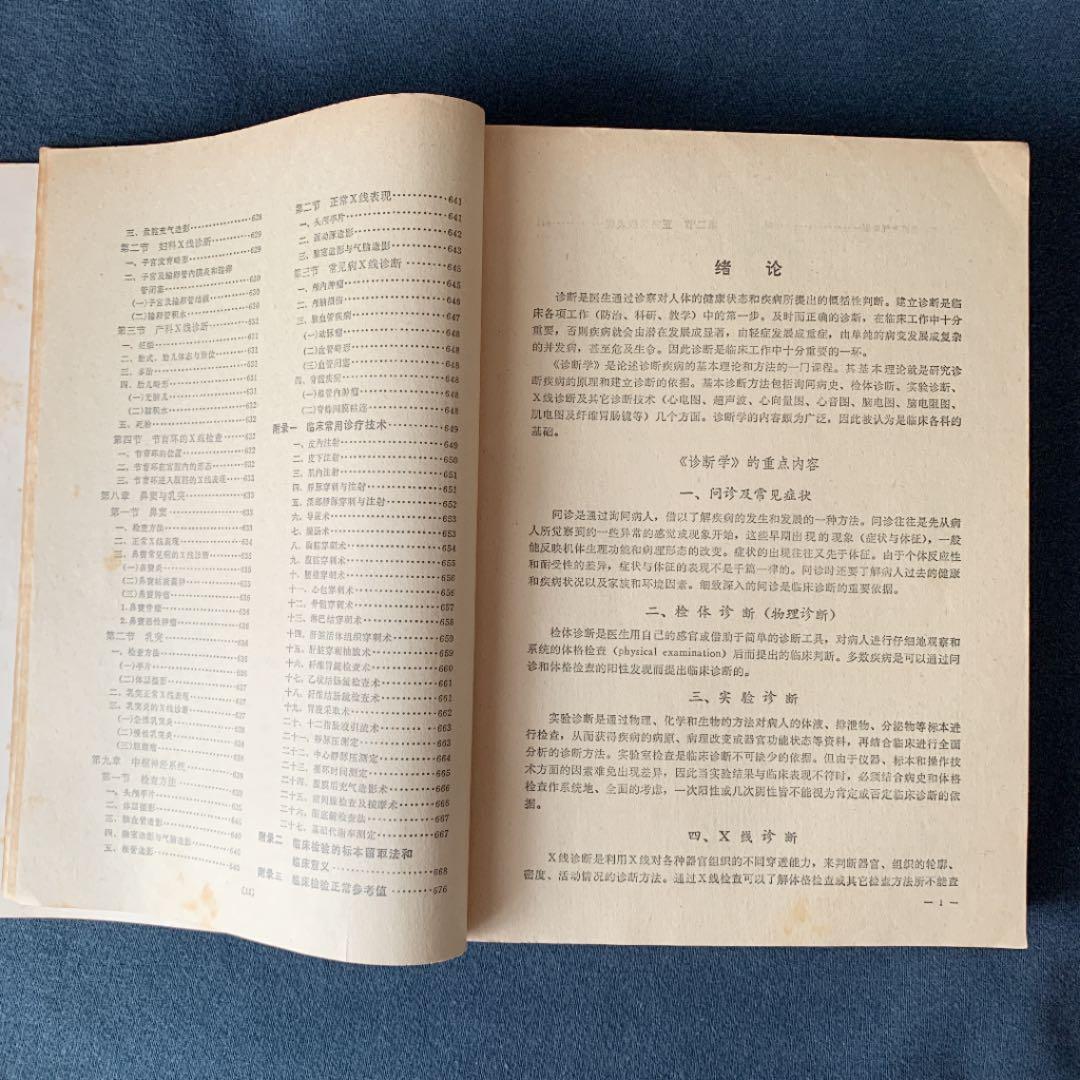 三、盆腔充气造影……628
第二节 妇科X线诊断……629
一、子宫发育畸形……629
二、子宫及输卵管内膜炎和输卵
管闭塞……630
(一)子宫及输卵管结核……630
(二)输卵管积水……630
第三节 产科X线诊断
一、妊娠
二、胎式、胎儿体态与胎位
三、多胎……631
四、胎儿畸形……631
(一)无脑儿
(二)脑积水
五、死胎
第四节 节育环的X线检查……632
一、节育环的位置……632
二、节育环在宫腔内的形态……632
三、节育环进入腹腔的X线表现……633
第八章 鼻窦与乳突……633
第一节 鼻窦……633
一、检查方法
二、正常X线表现
三、鼻窦常见病的X线诊断……635
(一)鼻窦炎……635
(二)鼻窦粘液囊肿
(三)鼻窦肿瘤……636
1.鼻窦骨瘤……636
2.鼻窦恶性肿瘤……636
第二节 乳突……636
一、检查方法……636
(一)平片
(二)体层摄影
二、乳突正常X线表现……637
三、乳突炎的X线诊断……637
(一)急性乳突炎
(二)慢性乳突炎
(三)胆脂瘤
第九章 中枢神经系统
第一节 检查方法
一、头颅平片
二、体层摄影
三、脑血管造影……640
四、脑室造影与气脑造影……640
五、椎管造影……640
第二节 正常X线表现……641
一、头颅平片……641
二、脑动脉造影……642
三、脑室造影与气脑造影……643
第三节 常见病X线诊断……645
一、颅内肿瘤
二、颅脑损伤
三、脑血管疾病
(一)动脉瘤……648
(二)血管畸形……648
(三)血管闭塞……648
四、脊髓疾病……648
(一)椎管内肿瘤……648
(二)脊蛛网膜粘连……648
附录一 临床常用诊疗技术……649
一、皮内注射……649
二、皮下注射……650
三、肌内注射……650
四、静脉穿刺与注射……651
五、深部静脉穿刺与注射……652
六、导尿术……653
七、灌肠术……653
八、胸腔穿刺术……654
九、腹腔穿刺术……655
十、腰椎穿刺术……655
十一、心包穿刺术……656
十二、骨髓穿刺术……657
十三、淋巴结穿刺术……658
十四、肝脏活体组织穿刺术……658
十五、肝脏穿刺抽脓术……659
十六、纤维胃镜检查术……660
十七、乙状结肠镜检查术……661
十八、纤维结肠镜检查术……661
十九、胃液采取术……662
二十、十二指肠液引流术……663
二十一、静脉压测定……664
二十二、中心静脉压测定……664
二十三、循环时间测定……665
二十四、腹膜后充气造影术……666
二十五、前列腺检查及按摩术……666
二十六、眼底镜检查法……667
二十七、基础代谢率测定……667
附录二 临床检验的标本留取法和
临床意义……668
附录三 临床检验正常参考值……676
绪 论
诊断是医生通过诊察对人体的健康状态和疾病所提出的概括性判断。建立诊断是临
床各项工作（防治、科研、教学）中的第一步。及时而正确的诊断，在临床工作中十分
重要，否则疾病就会由潜在发展成显著，由轻症发展成重症，由单纯的病变发展成复杂
的并发病，甚至危及生命。因此诊断是临床工作中十分重要的一环。
《诊断学》是论述诊断疾病的基本理论和方法的一门课程。其基本理论就是研究诊
断疾病的原理和建立诊断的依据。基本诊断方法包括询问病史、检体诊断、实验诊断、
X线诊断及其它诊断技术（心电图、超声波、心向量图、心音图、脑电图、脑电阻图、
肌电图及纤维胃肠镜等）几个方面。诊断学的内容颇为广泛，因此被认为是临床各科的
基础。
《诊断学》的重点内容
一、问诊及常见症状
问诊是通过询问病人，借以了解疾病的发生和发展的一种方法。问诊往往是先从病
人所觉察到的一些异常的感觉或现象开始，这些早期出现的现象（症状与体征），一般
能反映机体生理功能和病理形态的改变。症状的出现往往又先于体征。由于个体反应性
和耐受性的差异，症状与体征的表现不是千篇一律的。问诊时还要了解病人过去的健康
和疾病状况以及家族和环境因素。细致深入的问诊是临床诊断的重要依据。
二、检 体 诊 断（物理诊断）
检体诊断是医生用自己的感官或借助于简单的诊断工具，对病人进行仔细地观察和
系统的体格检查（physical examination）后而提出的临床判断。多数疾病是可以通过问
诊和体格检查的阳性发现而提出临床诊断的。
三、实 验 诊 断
实验诊断是通过物理、化学和生物的方法对病人的体液、排泄物、分泌物等标本进
行检查，从而获得疾病的病原、病理改变或器官功能状态等资料，再结合临床进行全面
分析的诊断方法。实验室检查是临床诊断不可缺少的依据。但由于仪器、标本和操作技
术方面的因素难免出现差异，因此当实验结果与临床表现不符时，必须结合病史和体格
检查作系统地、全面的考虑，一次阳性或几次阴性皆不能视为肯定或否定临床诊断的依
据。
四、X 线 诊 断
X线诊断是利用X线对各种器官组织的不同穿透能力，来判断器官、组织的轮廓、
密度、活动情况的诊断方法。通过X线检查可以了解体格检查或其它检查方法所不能查
— 1 —